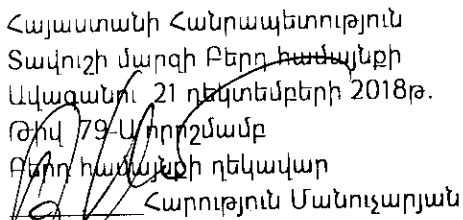 Հայաստանի Հանրապետություն
Տավուշի մարզի Բերդ համայնքի
Ավագանու 21 դեկտեմբերի 2018թ.
Թիվ 79-Ա որոշմամբ
Բերդ համայնքի ղեկավար
Հարություն Մանուչարյան